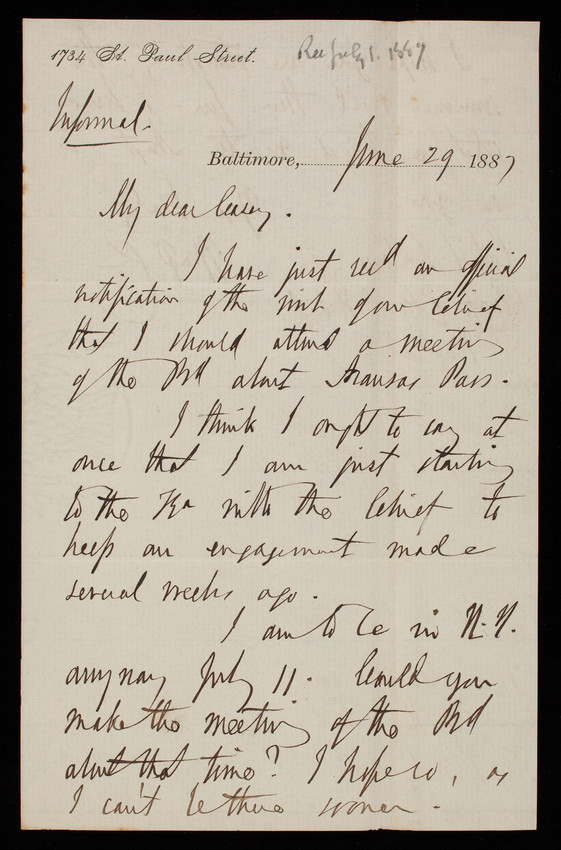 1734 St. Paul Street.
Rec July 1. 1887
Informal.
Baltimore, June 29 1887
My dear Casey.
I have just rec'd an official
notification of the wish of our Chief
that I should attend a meeting
of the Bd about Aransas Pass.
I think I ought to say at
once that I am just starting
to the Va with the Chief to
keep an engagement made
several weeks ago.
I am to be in N.Y.
anyway July 11. Could you
make the meeting of the Bd
about that time? I hope so, as
I can't be there sooner.